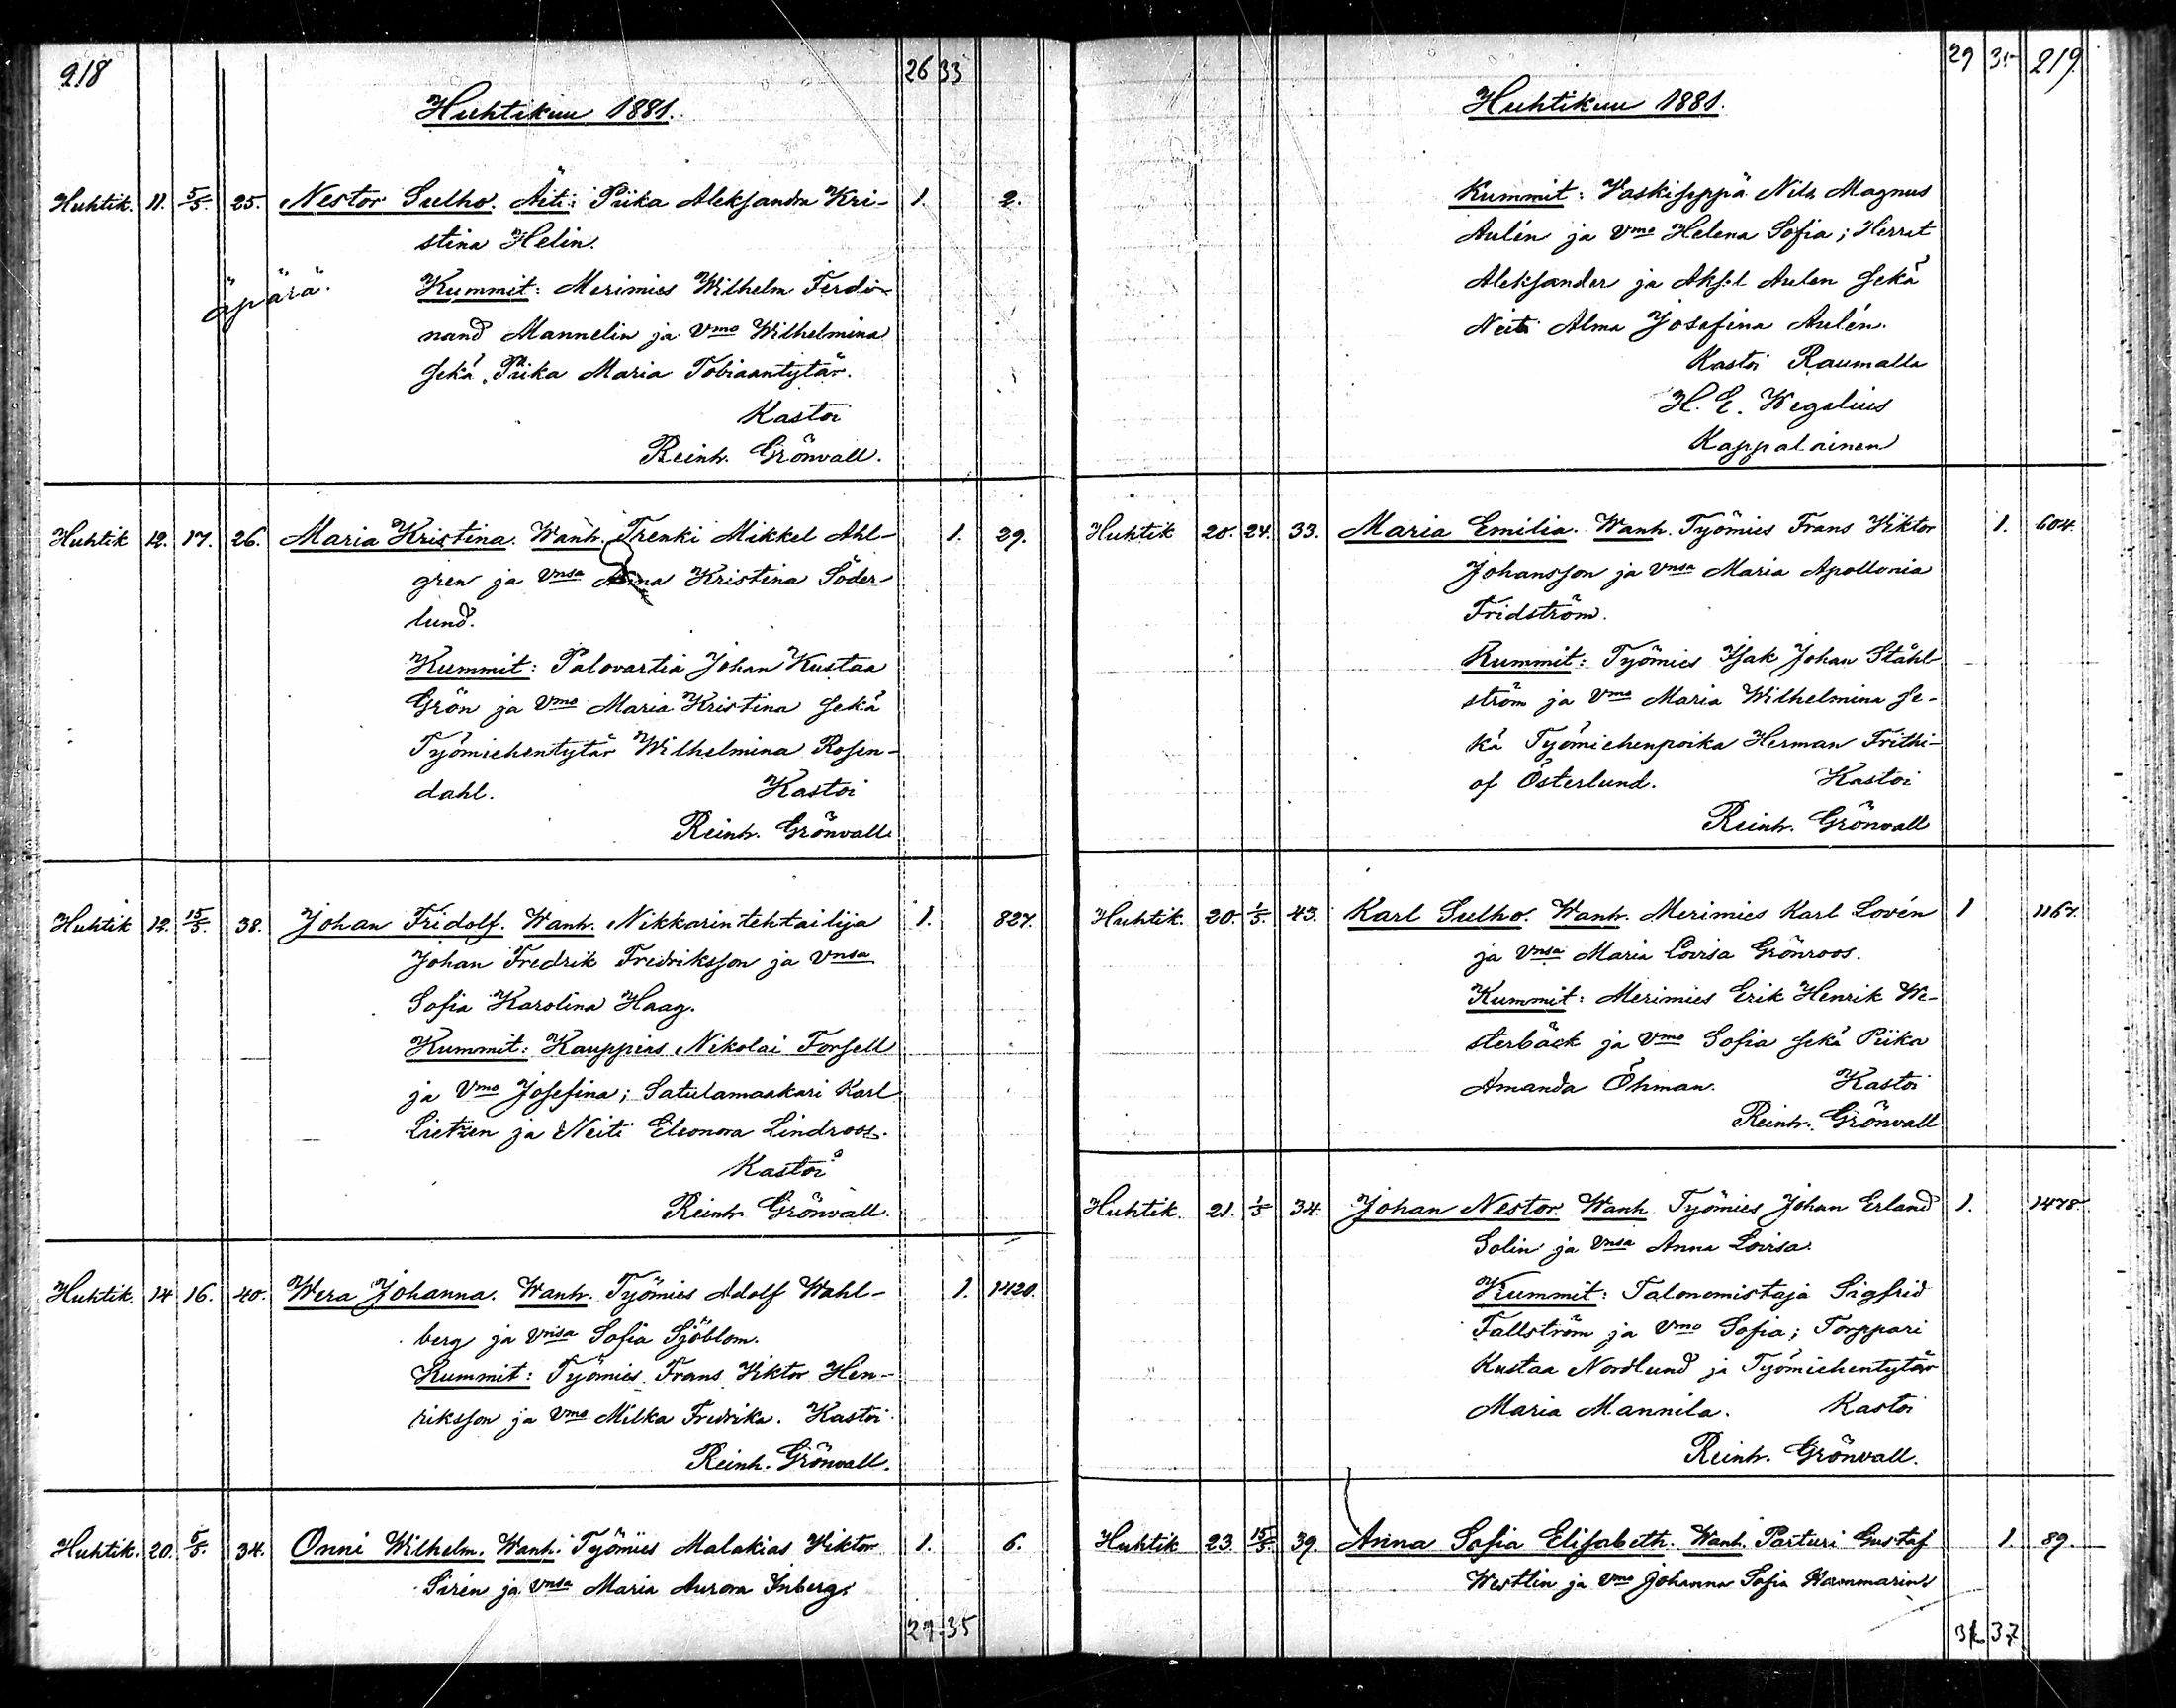 218
26 33
Huhtikuu 1881.
Huhtik. 11. 5/5. 25. Nestor Sulho. Äiti: Piika Aleksandra Kri- 1. 2.
stina Helin.
äpärä.
Kummit: Merimies Wilhelm Ferdi-
nand Mannelin ja Vmo Wilhelmina
sekä Piika Maria Tobiaantytär.
Kastoi
Reinh. Grönvall.
Huhtik 12. 17. 26. Maria Kristina. Wanh. Trenki Mikkel Ahl- 1. 29.
gren ja Vnsa Kristina Söder-
lund.
Kummit: Palovartia Johan Kustaa
Grön ja Vmo Maria Kristina sekä
Työmiehentytär Wilhelmina Rosen-
dahl. Kastoi
Reinh. Grönvall
Huhtik 12. 15/5. 38. Johan Fridolf. Wanh. Nikkarintehtailija 1. 827.
Johan Fredrik Fredriksson ja Vnsa
Sofia Karolina Haag.
Kummit: Kauppias Nikolai Forsell
ja Vmo Josefina; Satulamaakari Karl
Lietzen ja Neiti Eleonora Lindroos.
Kastoi
Reinh. Grönvall.
Huhtik. 14 16. 40. Wera Johanna. Wanh. Työmies Adolf Wahl- 1. 1420.
berg ja Vnsa Sofia Sjöblom.
Kummit: Työmies Frans Viktor Hen-
riksson ja Vmo Milka Fredrika. Kastoi
Reinh. Grönvall.
Huhtik. 20. 5/5. 34. Onni Wilhelm. Wanh. Työmies Malakias Viktor 1. 6.
Sirén ja Vnsa Maria Aurora Inberg.
27 35
29 35 219.
Huhtikuu 1881.
Kummit: Vaskiseppä Nils Magnus
Aulén ja Vmo Helena Sofia; Herrat
Aleksander ja Aksel Aulen sekä
Neiti Alma Josefina Aulén.
Kastoi Raumalla
H. E. Wegelius
Kappalainen
Huhtik 20. 24. 33. Maria Emilia. Wanh. Työmies Frans Viktor 1. 604.
Johansson ja Vnsa Maria Apollonia
Fridström.
Kummit: Työmies Isak Johan Ståhl-
ström ja Vmo Maria Wilhelmina se-
kä Työmiehenpoika Herman Frithi-
of Österlund. Kastoi
Reinh. Grönvall
Huhtik. 20. 1/5. 43. Karl Sulho. Wanh. Merimies Karl Lovén 1 1167.
ja Vnsa Maria Lovisa Grönroos.
Kummit: Merimies Erik Henrik We-
sterbäck ja Vmo Sofia sekä Piika
Amanda Öhman. Kastoi
Reinh. Grönvall
Huhtik. 21. 1/5 34. Johan Nestor. Wanh Työmies Johan Erland 1. 1478.
Solin ja Vnsa Anna Lovisa.
Kummit: Talonomistaja Sigfrid
Fallström ja Vmo Sofia; Torppari
Kustaa Nordlund ja Työmiehentytär
Maria Mannila. Kastoi
Reinh. Grönvall.
Huhtik 23. 15/5. 39. Anna Sofia Elisabeth. Wanh. Parturi Gustaf 1. 89.
Westlin ja Vmo Johanna Sofia
37